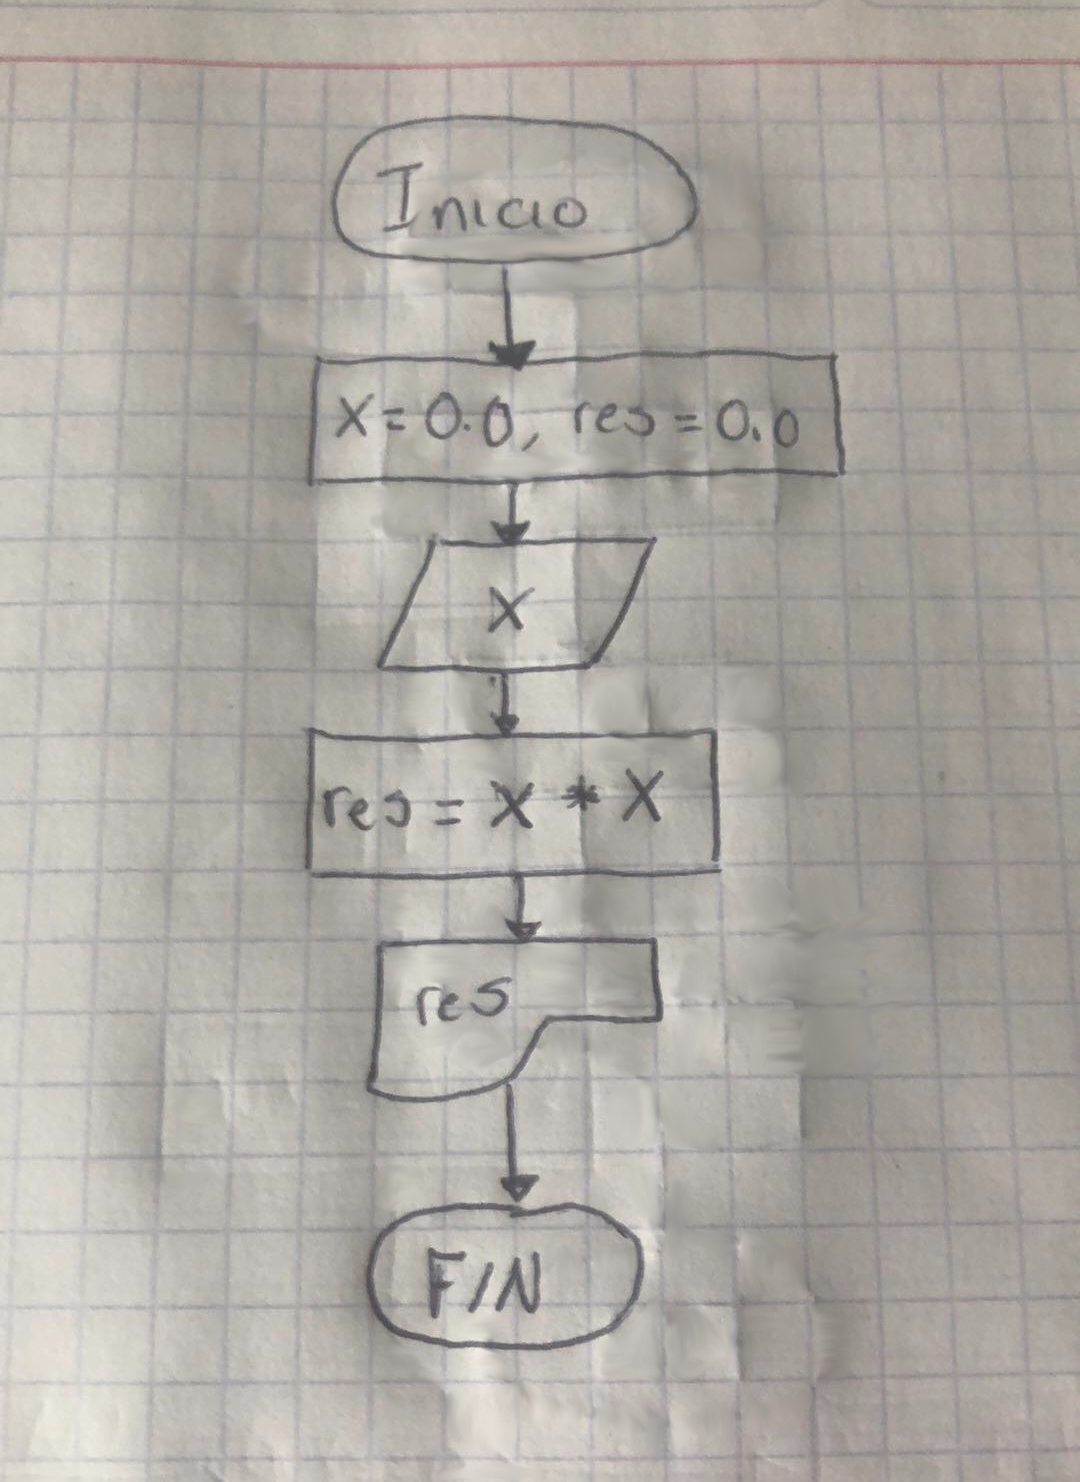 Inicio
X = 0.0, res = 0.0
X
res = X * X
res
FIN